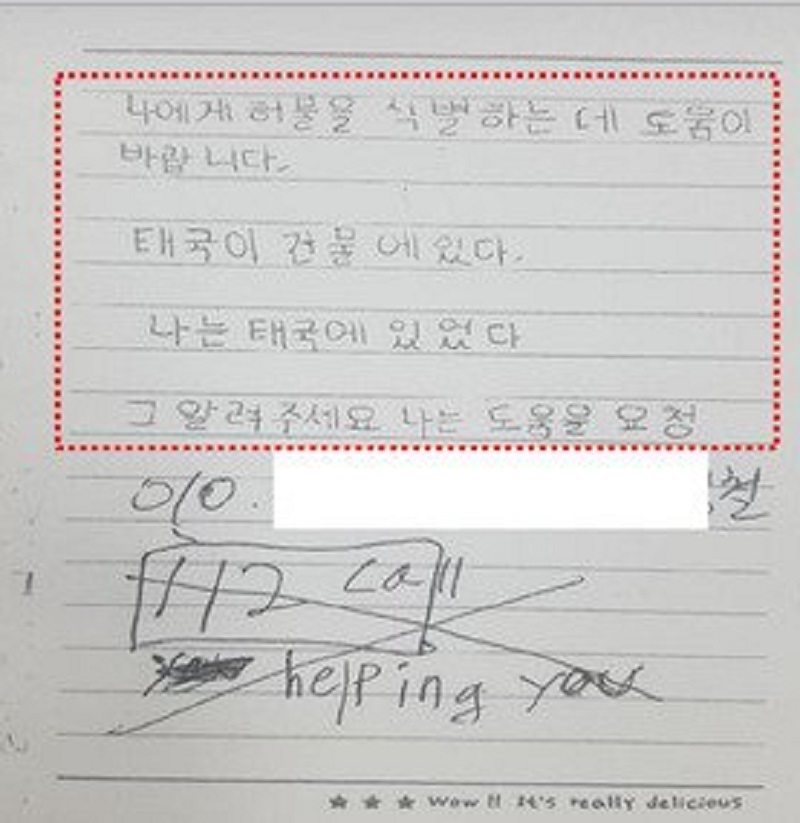 나에게 허물을 식별하는 데 도움이
바랍니다.
태국이 건물에 있다.
나는 태국에 있었다
그 알려주세요 나는 도움을 요청
010.
112 call
helping you
★ ★ ★ Wow!! It's really delicious